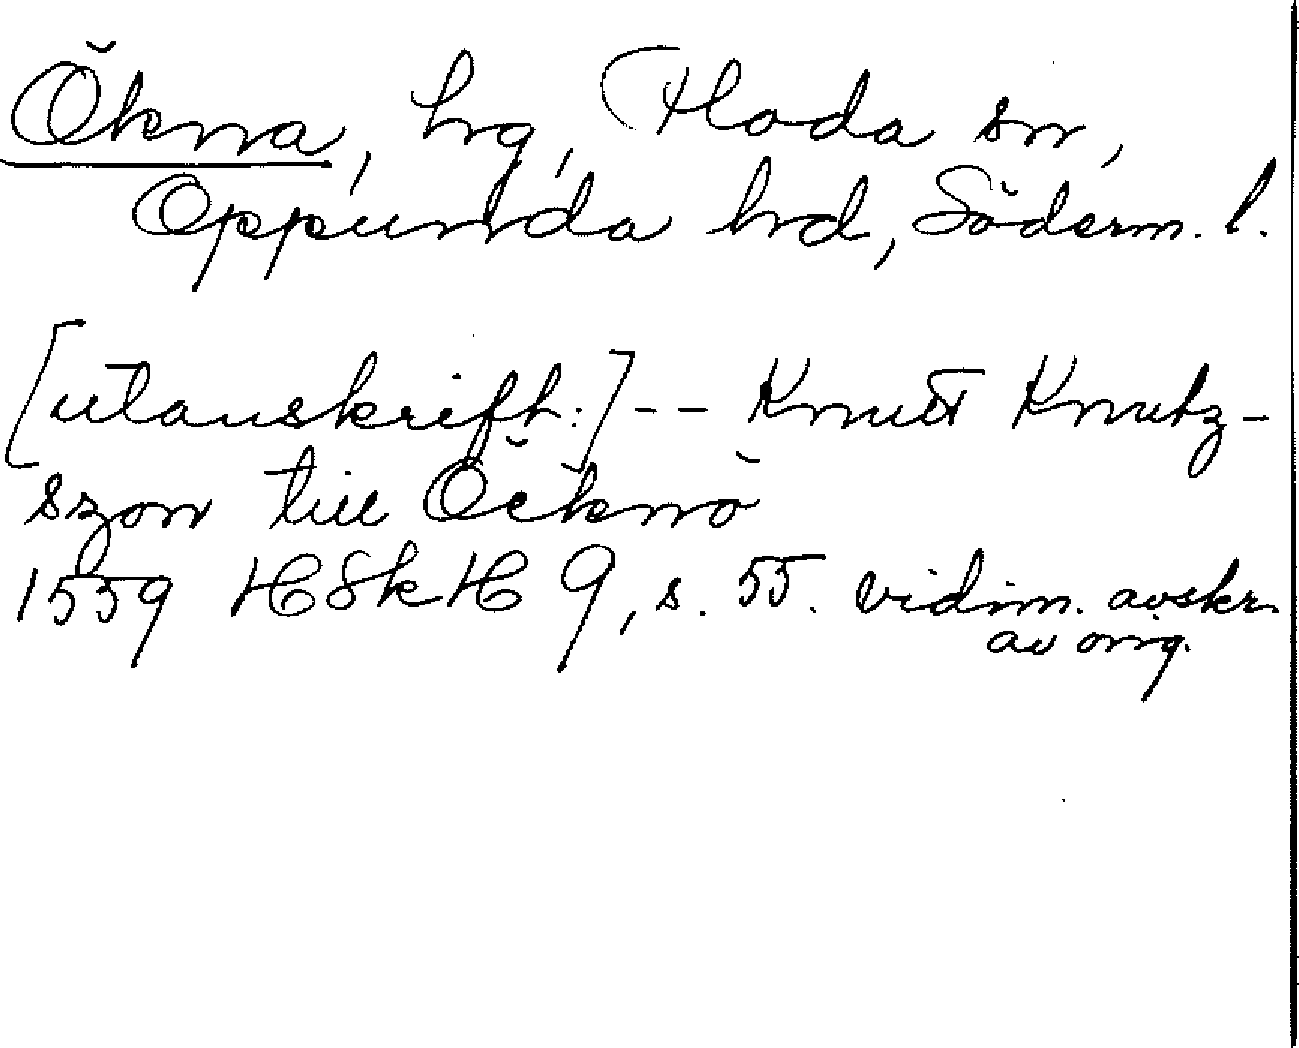 Ökna, hg, Floda sn,
Oppunda hd, Söderm. l.
[utanskrift:] -- Knut Knutz-
szon till Öcknö
1559 HSkH 9, s. 55. vidim. avskr.
av orig.